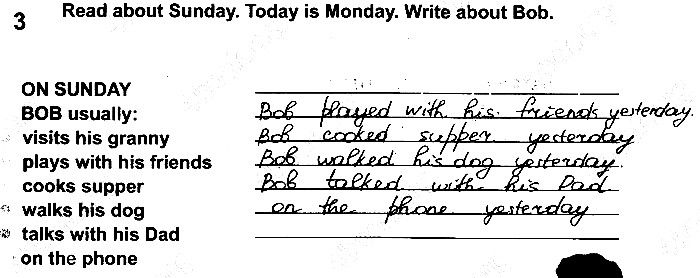 3 Read about Sunday. Today is Monday. Write about Bob.
ON SUNDAY
BOB usually:
visits his granny
plays with his friends
cooks supper
walks his dog
talks with his Dad
on the phone
Bob played with his friends yesterday.
Bob cooked supper yesterday
Bob walked his dog yesterday.
Bob talked with his Dad
on the phone yesterday